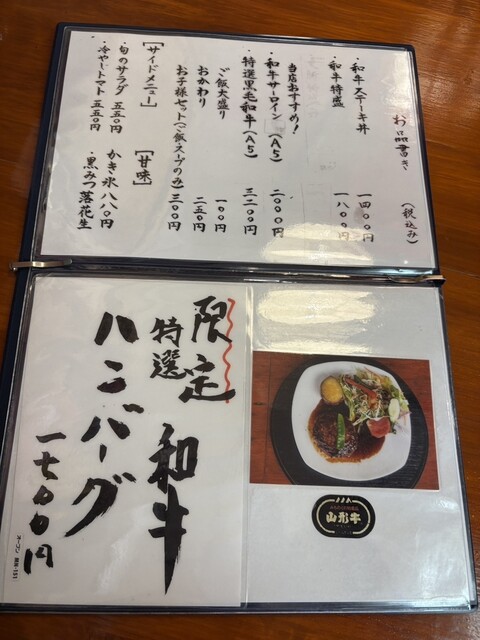 お品書き (税込み)
・和牛ステーキ丼 一四〇〇円
・和牛特盛 一八〇〇円
当店おすすめ!
・和牛サーロイン(A5) 二〇〇〇円
特選黒毛和牛(A5) 三二〇〇円
ご飯大盛り 一〇〇円
おかわり 二五〇円
お子様セット(ご飯・スープのみ) 三〇〇円
【サイドメニュー】
・旬のサラダ 五五〇円
・冷やしトマト 五五〇円
【甘味】
かき氷 八八〇円
・黒みつ落花生
限定
特選 和牛
ハンバーグ
一七〇〇円
山形牛